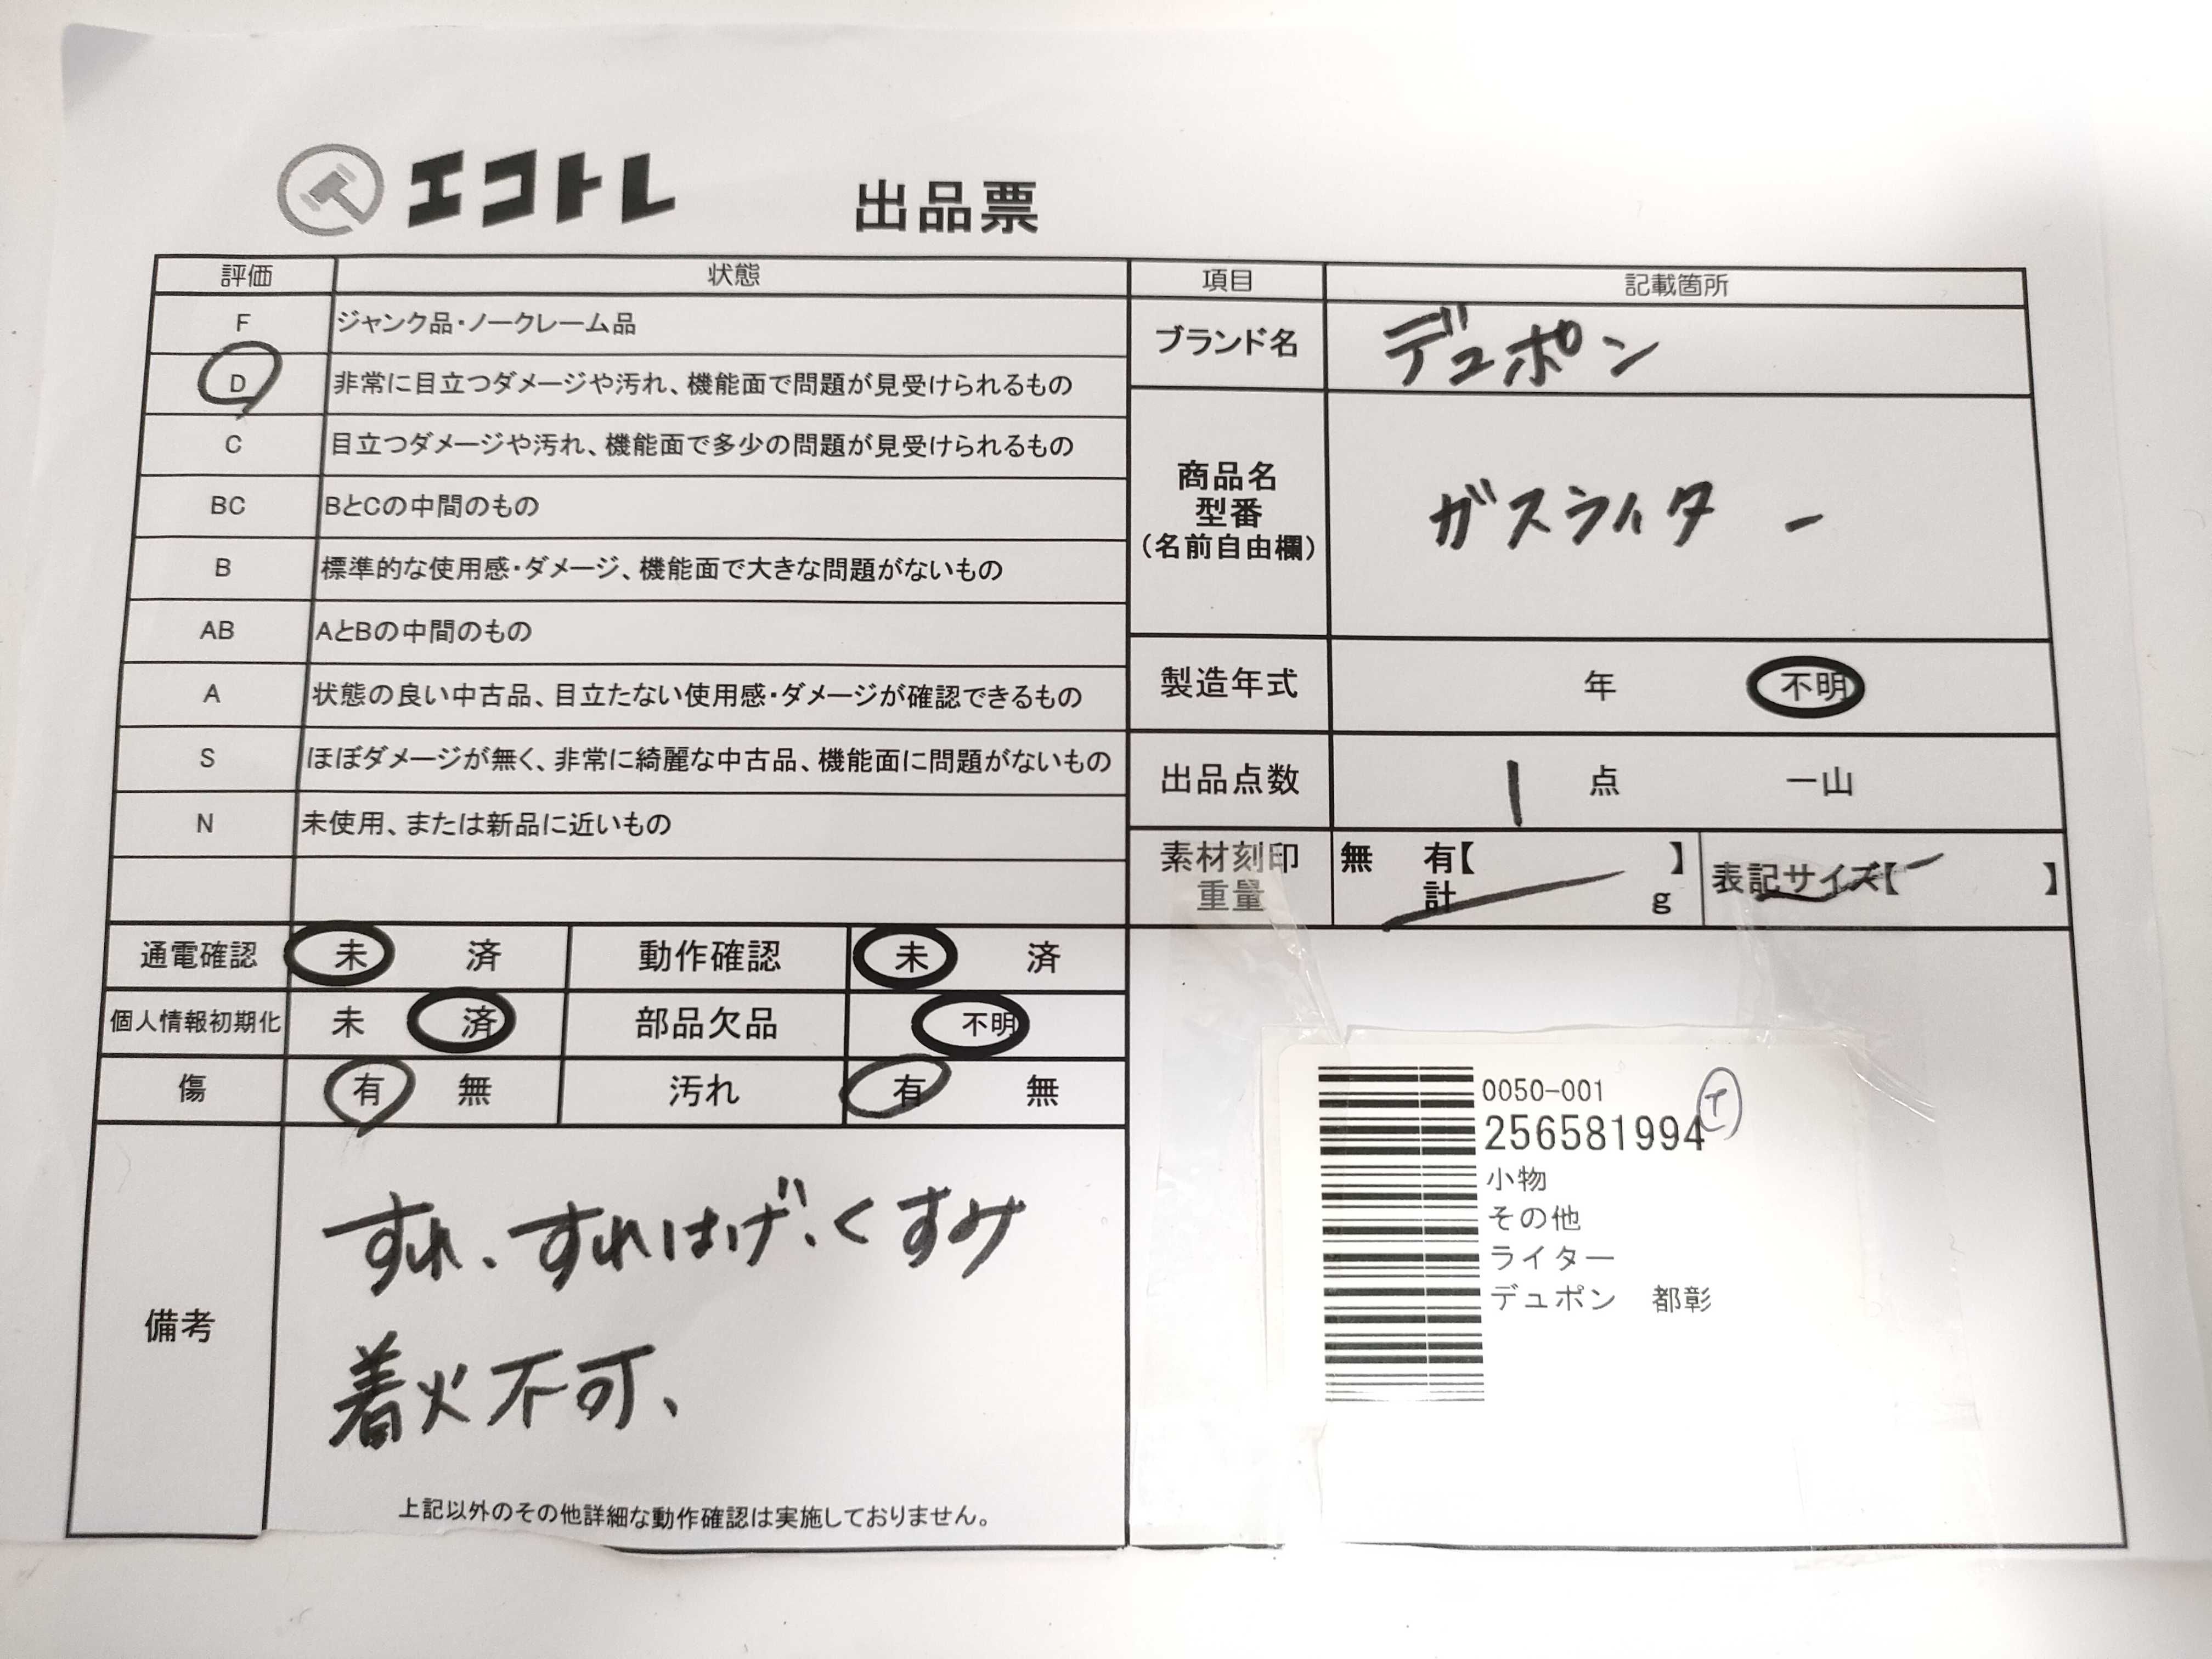 エコトレ 出品票
評価 状態
F ジャンク品・ノークレーム品
D 非常に目立つダメージや汚れ、機能面で問題が見受けられるもの
C 目立つダメージや汚れ、機能面で多少の問題が見受けられるもの
BC BとCの中間のもの
B 標準的な使用感・ダメージ、機能面で大きな問題がないもの
AB AとBの中間のもの
A 状態の良い中古品、目立たない使用感・ダメージが確認できるもの
S ほぼダメージが無く、非常に綺麗な中古品、機能面に問題がないもの
N 未使用、または新品に近いもの
通電確認 未 済 動作確認 未 済
個人情報初期化 未 済 部品欠品 不明
傷 有 無 汚れ 有 無
備考
すれ、すれはげ、くすみ
着火不可、
上記以外のその他詳細な動作確認は実施しておりません。
項目 記載箇所
ブランド名 デュポン
商品名
型番
(名前自由欄)
ガスライター
製造年式 年 不明
出品点数 1 点 一山
素材刻印 無 有【 】
重量 計 g
表記サイズ【 】
0050-001
256581994
T
小物
その他
ライター
デュポン 都彰